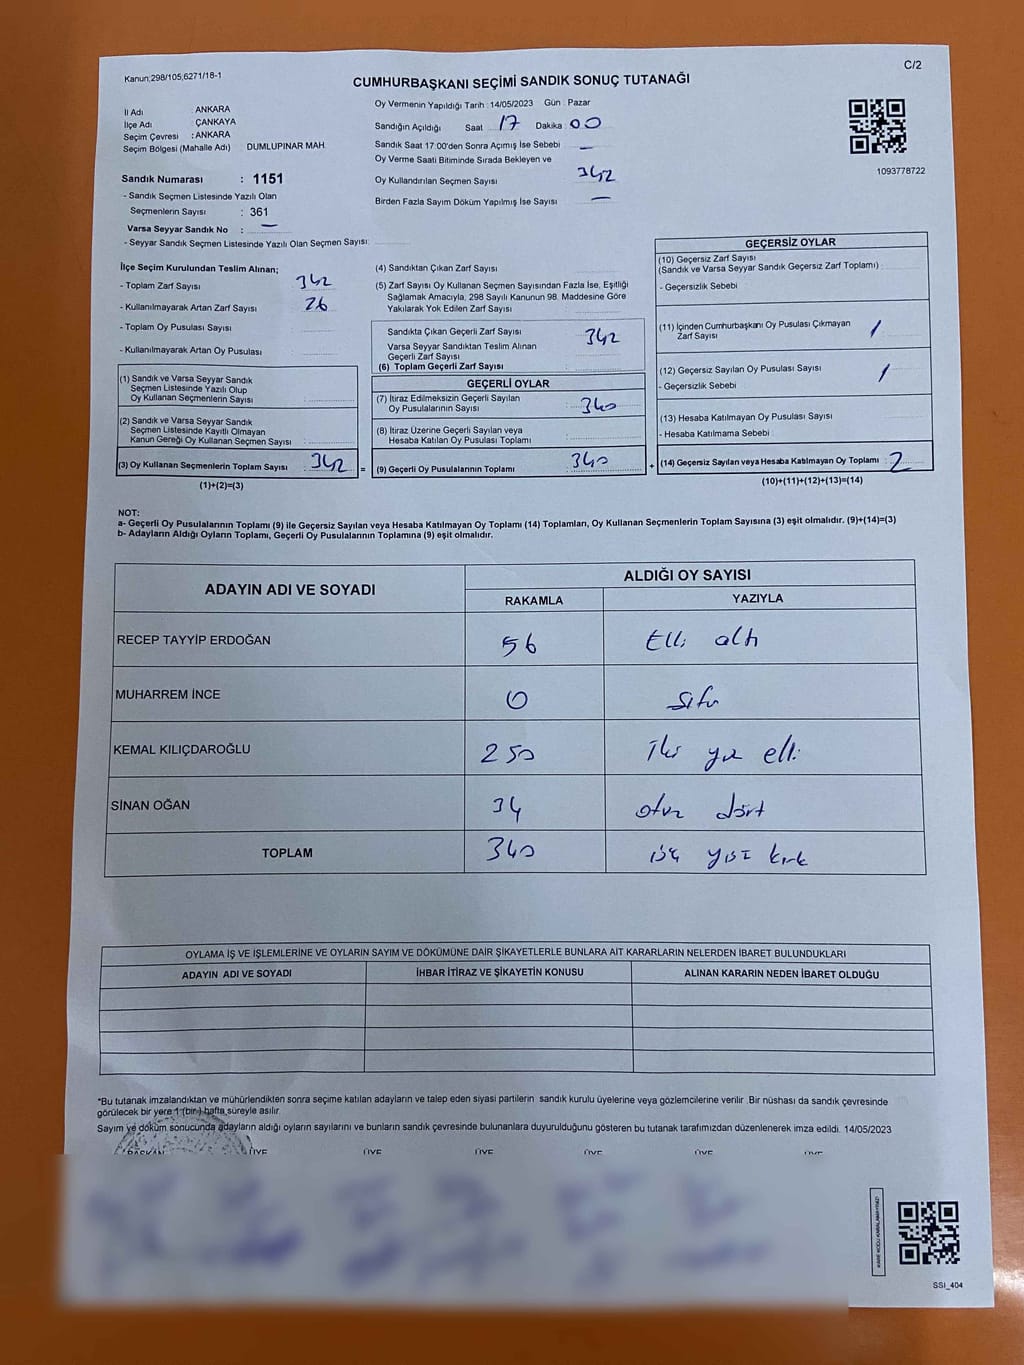 Kanun;298/105,6271/18-1
C/2
CUMHURBAŞKANI SEÇİMİ SANDIK SONUÇ TUTANAĞI
İl Adı : ANKARA
İlçe Adı : ÇANKAYA
Seçim Çevresi : ANKARA
Seçim Bölgesi (Mahalle Adı) DUMLUPINAR MAH.
Sandık Numarası : 1151
- Sandık Seçmen Listesinde Yazılı Olan
Seçmenlerin Sayısı : 361
Varsa Seyyar Sandık No : —
- Seyyar Sandık Seçmen Listesinde Yazılı Olan Seçmen Sayısı:
Oy Vermenin Yapıldığı Tarih : 14/05/2023 Gün : Pazar
Sandığın Açıldığı Saat 17 Dakika 00
Sandık Saat 17:00'den Sonra Açımış İse Sebebi —
Oy Verme Saati Bitiminde Sırada Bekleyen ve
Oy Kullandırılan Seçmen Sayısı 342
Birden Fazla Sayım Döküm Yapılmış İse Sayısı —
1093778722
İlçe Seçim Kurulundan Teslim Alınan;
- Toplam Zarf Sayısı 342
- Kullanılmayarak Artan Zarf Sayısı 26
- Toplam Oy Pusulası Sayısı
- Kullanılmayarak Artan Oy Pusulası
(1) Sandık ve Varsa Seyyar Sandık
Seçmen Listesinde Yazılı Olup
Oy Kullanan Seçmenlerin Sayısı :
(2) Sandık ve Varsa Seyyar Sandık
Seçmen Listesinde Kayıtlı Olmayan
Kanun Gereği Oy Kullanan Seçmen Sayısı :
(3) Oy Kullanan Seçmenlerin Toplam Sayısı : 342 =
(1)+(2)=(3)
(4) Sandıktan Çıkan Zarf Sayısı
(5) Zarf Sayısı Oy Kullanan Seçmen Sayısından Fazla İse, Eşitliği
Sağlamak Amacıyla, 298 Sayılı Kanunun 98. Maddesine Göre
Yakılarak Yok Edilen Zarf Sayısı
Sandıkta Çıkan Geçerli Zarf Sayısı 342
Varsa Seyyar Sandıktan Teslim Alınan
Geçerli Zarf Sayısı
(6) Toplam Geçerli Zarf Sayısı :
GEÇERLİ OYLAR
(7) İtiraz Edilmeksizin Geçerli Sayılan
Oy Pusulalarının Sayısı : 340
(8) İtiraz Üzerine Geçerli Sayılan veya
Hesaba Katılan Oy Pusulası Toplamı :
(9) Geçerli Oy Pusulalarının Toplamı : 340 +
GEÇERSİZ OYLAR
(10) Geçersiz Zarf Sayısı
(Sandık ve Varsa Seyyar Sandık Geçersiz Zarf Toplamı) :
- Geçersizlik Sebebi
(11) İçinden Cumhurbaşkanı Oy Pusulası Çıkmayan
Zarf Sayısı 1
(12) Geçersiz Sayılan Oy Pusulası Sayısı 1
- Geçersizlik Sebebi
(13) Hesaba Katılmayan Oy Pusulası Sayısı :
- Hesaba Katılmama Sebebi :
(14) Geçersiz Sayılan veya Hesaba Katılmayan Oy Toplamı : 2
(10)+(11)+(12)+(13)=(14)
NOT:
a- Geçerli Oy Pusulalarının Toplamı (9) ile Geçersiz Sayılan veya Hesaba Katılmayan Oy Toplamı (14) Toplamları, Oy Kullanan Seçmenlerin Toplam Sayısına (3) eşit olmalıdır. (9)+(14)=(3)
b- Adayların Aldığı Oyların Toplamı, Geçerli Oy Pusulalarının Toplamına (9) eşit olmalıdır.
ADAYIN ADI VE SOYADI ALDIĞI OY SAYISI
RAKAMLA YAZIYLA
RECEP TAYYİP ERDOĞAN 56 Elli altı
MUHARREM İNCE 0 Sıfır
KEMAL KILIÇDAROĞLU 250 İki yüz elli
SİNAN OĞAN 34 otuz dört
TOPLAM 340 üç yüz kırk
OYLAMA İŞ VE İŞLEMLERİNE VE OYLARIN SAYIM VE DÖKÜMÜNE DAİR ŞİKAYETLERLE BUNLARA AİT KARARLARIN NELERDEN İBARET BULUNDUKLARI
ADAYIN ADI VE SOYADI İHBAR İTİRAZ VE ŞİKAYETİN KONUSU ALINAN KARARIN NEDEN İBARET OLDUĞU
*Bu tutanak imzalandıktan ve mühürlendikten sonra seçime katılan adayların ve talep eden siyasi partilerin sandık kurulu üyelerine veya gözlemcilerine verilir .Bir nüshası da sandık çevresinde
görülecek bir yere 1 (bir) hafta süreyle asılır.
Sayım ve döküm sonucunda adayların aldığı oyların sayılarını ve bunların sandık çevresinde bulunanlara duyurulduğunu gösteren bu tutanak tarafımızdan düzenlenerek imza edildi. 14/05/2023
BAŞKAN ÜYE ÜYE ÜYE ÜYE ÜYE ÜYE
SSI_404